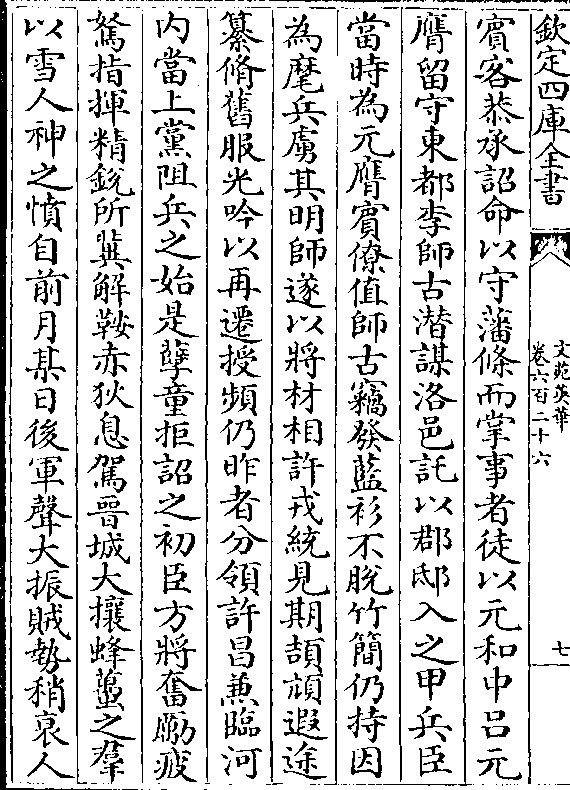 欽定四庫全書
文苑英華
卷六百二十六
七
賓客恭承詔命以守藩條而掌事者徒以元和中呂元
膺留守東都李師古潛謀洛邑託以郡邸入之甲兵臣
當時為元膺賓僚值師古竊發藍衫不脫竹簡仍持因
為麾兵虜其明師遂以將材相許戎統見期頡頏遐途
纂脩舊服光吟以再遷授頻仍昨者分領許昌兼臨河
内當上黨阻兵之始是孽童拒詔之初臣方將奮勵疲
駑指揮精銳所兾解鞍赤狄息駕晉城大攘蜂蠆之羣
以雪人神之憤自前月某日後軍聲大振賊勢稍衰人